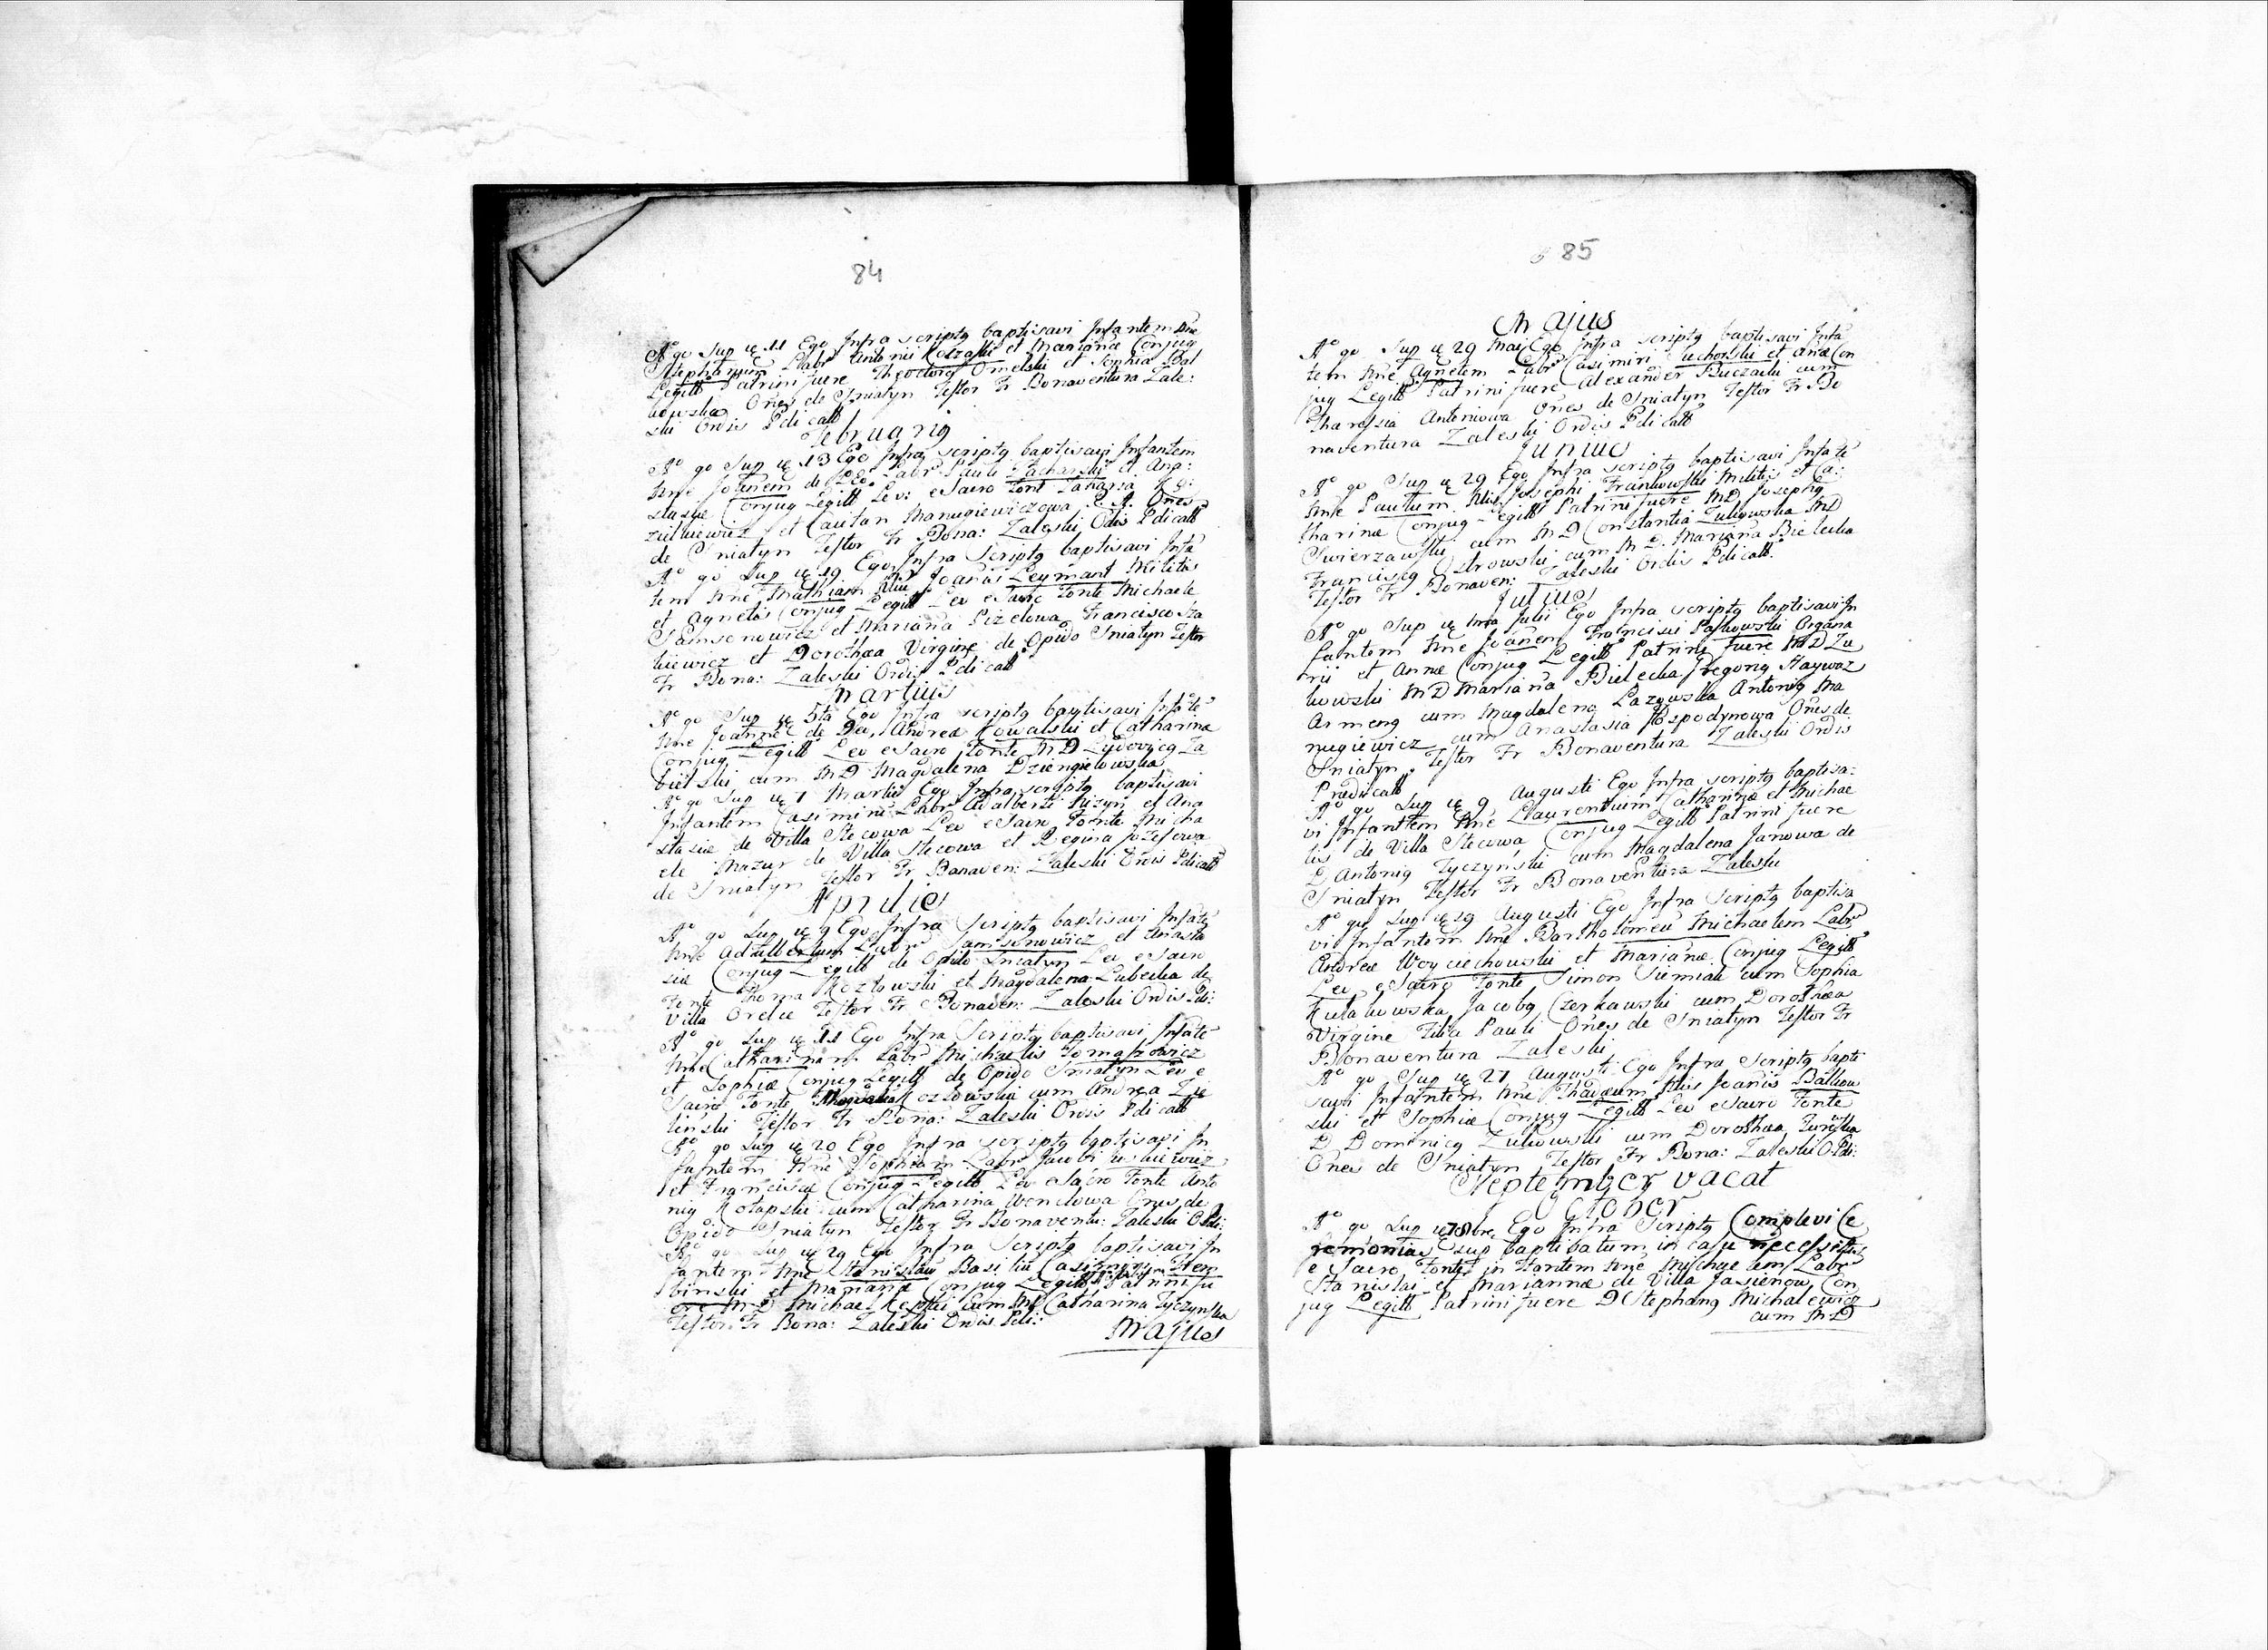 84
Aº qo Sup ut 11 Ego Infra scriptg baptisavi Infantem Nne
Stephanum Labr Antonii Koszaki et Marianæ Conjug
Legitt Patrini fuere Theodorg Omelski et Sophia Bal
kowska Ones de Sniatyn Testor Fr Bonaventura Zale:
ski Ordis Pdicatt
Februarig
Aº qo Sup ut 13 Ego Infra scriptg baptisavi Infantem
Nne Joanem de Deo Labr Pauli Zacharski et Ana:
stasiæ Conjug Legitt Lev: e Sacro Font Zaharia
et Caietan Manugiewiczowa Ones
de Sniatyn Testor Fr Bona: Zaleski Ordis Pdicatt
Aº qo Sup ut 19 Ego Infra Scriptg baptisavi Infa
tem Nne Mathiam Joanis Leymant Militis
et Agnetis Conjug Legitt Lev e Sacro Fonte Michaele
Samsonowicz et Mariana Pizelowa Francisco
kiewicz et Dorothæa Virgine de Opido Sniatyn Testor
Fr Bona: Zaleski Ordis Pdicatt
Martius
Aº qo Sup ut 5ta Ego Infra scriptg baptisavi Infate
Nne Joanne de Deo Andreæ Kowalski et Catharina
Conjug Legitt Lev e Sacro Fonte M D Lydovicg Za
bielski cum M D Magdalena Dziengielowska
Aº qo Sup ut 7 Martii Ego Infra scriptg baptisavi
Infantem Casimiru Labr Adalberti et Ana
stasiæ de Villa Stecowa Lev e Sacro Fonte Micha
ele Mazur de Villa Stecowa et Regina Jozefowa
de Sniatyn Testor Fr Bonaven: Zaleski Ordis Pdicatt
Aprilis
Aº qo Sup ut 9 Ego Infra Scriptg baptisavi Infate
Nne Adalbertum Labr Samsonowicz et Anasta
siæ Conjug Legitt de Opido Sniatyn Lev e Sacro
Fonte Thoma Kozlowski et Magdalena Lubecka de
Villa Orelec Testor Fr Bonaven: Zaleski Ordis Pdi:
Aº qo Sup ut 11 Ego Infra Scriptg baptisavi Infate
Nne Catharinam Labr Michaelis Tomaszowicz
et Sophiæ Conjug Legitt de Opido Sniatyn Lev e
Sacro Fonte Kozlowska cum Andrea Zie
linski Testor Fr Bona: Zaleski Ordis Pdicatt
Aº qo Sup ut 20 Ego Infra scriptg baptisavi In
fantem Nne Sophiam Labr Jacobi
et Franciscæ Conjug Legitt Lev e Sacro Fonte Anto
nig Kotapski cum Catharina Wenclowa Ones de
Opido Sniatyn Testor Fr Bonaventu: Zaleski O Pdi:
Aº qo Sup ut 29 Ego Infra Scriptg baptisavi In
fantem Nne Stanislau Basiliu Casimiri Dem
binski et Marianæ Conjug Legitt Patrini fu
ere M D Michael Kepski cum M D Catharina Tyczynska
Testor Fr Bona: Zaleski Ordis Pdi:
Majus
85
Majus
Aº qo Sup ut 29 Maij Ego Infra scriptg baptisavi Infa
tem Nne Agnetem Labr Casimiri Ciechorski et Anæ Con
jug Legitt Patrini fuere Alexander Buczacki cum
Tharesia Antoniowa Ones de Sniatyn Testor Fr Bo
naventura Zaleski Ordis Pdicatt
Junius
Aº qo Sup ut 29 Ego Infra scriptg baptisavi Infate
Nne Paulum Josephi Frankowski Militis et Ca:
tharinæ Conjug Legitt Patrini fuere M D Josephg
Swierzawski cum M D Constantia Zukowska M D
Franciscg Ostrowski cum M D Mariana Bielecka
Testor Fr Bonaven: Zaleski Ordis Pdicatt
Julius
Aº qo Sup ut 1ma Julii Ego Infra scriptg baptisavi In
fantem Nne Joanem Francisci Paszkowski Organa
rii et Annæ Conjug Legitt Patrini fuere M D Zu
kowski M D Mariana Bielecka Gregorig Haywaz
Armeng cum Magdalena Lazowska Antonig Ma
nugiewicz cum Anastasia Hospodynowa Ones de
Sniatyn Testor Fr Bonaventura Zaleski Ordis
Prædicatt
Aº qo Sup ut 9 Augusti Ego Infra scriptg baptisa:
vi Infantem Nne Laurentium Catharinæ et Michae
lis de Villa Stecowa Conjug Legitt Patrini fuere
D Antonig Tyczynski cum Magdalena Janowa de
Sniatyn Testor Fr Bonaventura Zaleski
Aº qo Sup ut 19 Augusti Ego Infra Scriptg baptisa
vi Infantem Nne Bartholomeu Michaelem Labr
Andreæ Woyciechowski et Marianæ Conjug Legitt
Lev e Sacro Fonte Simon Siemiak cum Sophia
Kulakowska Jacobg Czerkawski cum Dorothæa
Virgine Filia Pauli Ones de Sniatyn Testor Fr
Bonaventura Zaleski
Aº qo Sup ut 27 Augusti Ego Infra Scriptg bapti
savi Infantem Nne Thadæum Joanis Balkow
ski et Sophiæ Conjug Legitt Lev e Sacro Fonte
D Dominicg Zukowski cum Dorothæa Turewska
Ones de Sniatyn Testor Fr Bona: Zaleski O Pdi:
September vacat
October
Aº qo Sup ut 7 8bre Ego Infra Scriptg Complevi Ce
remonias sup baptibatum in casu necessitis
e Sacro Fonte Infantem Nne Michaelem Labr
Stanislai et Mariannæ de Villa Jasienow Con
jug Legitt Patrini fuere D Stephang Michalewicz
cum M D